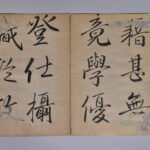 籍甚無
竟學優
登仕攝
職從政